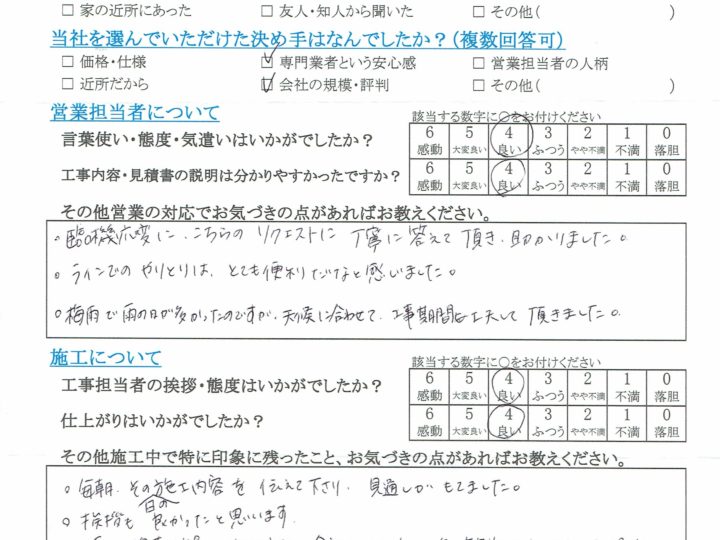 □ 家の近所にあった □ 友人・知人から聞いた □ その他( )
当社を選んでいただけた決め手はなんでしたか？(複数回答可)
□ 価格・仕様 ☑ 専門業者という安心感 □ 営業担当者の人柄
□ 近所だから ☑ 会社の規模・評判 □ その他( )
営業担当者について
該当する数字に○をお付けください
言葉使い・態度・気遣いはいかがでしたか？
6 5 4 3 2 1 0
感動 大変良い 良い ふつう やや不満 不満 落胆
工事内容・見積書の説明は分かりやすかったですか？
6 5 4 3 2 1 0
感動 大変良い 良い ふつう やや不満 不満 落胆
その他営業の対応でお気づきの点があればお教えください。
。臨機応変に、こちらの リクエストに 丁寧に答えて頂き、助かりました。
。ラインでの やりとりは、とても便利だなと感いました。
。梅雨で雨の日が多かったのですが、天候に合わせて、工事期間を工夫して頂きました。
施工について
該当する数字に○をお付けください
工事担当者の挨拶・態度はいかがでしたか？
6 5 4 3 2 1 0
感動 大変良い 良い ふつう やや不満 不満 落胆
仕上がりはいかがでしたか？
6 5 4 3 2 1 0
感動 大変良い 良い ふつう やや不満 不満 落胆
その他施工中で特に印象に残ったこと、お気づきの点があればお教えください。
。毎朝、その日の施工内容を 伝えて下さり、見通しが もてました。
。挨拶も 良かったと思います。